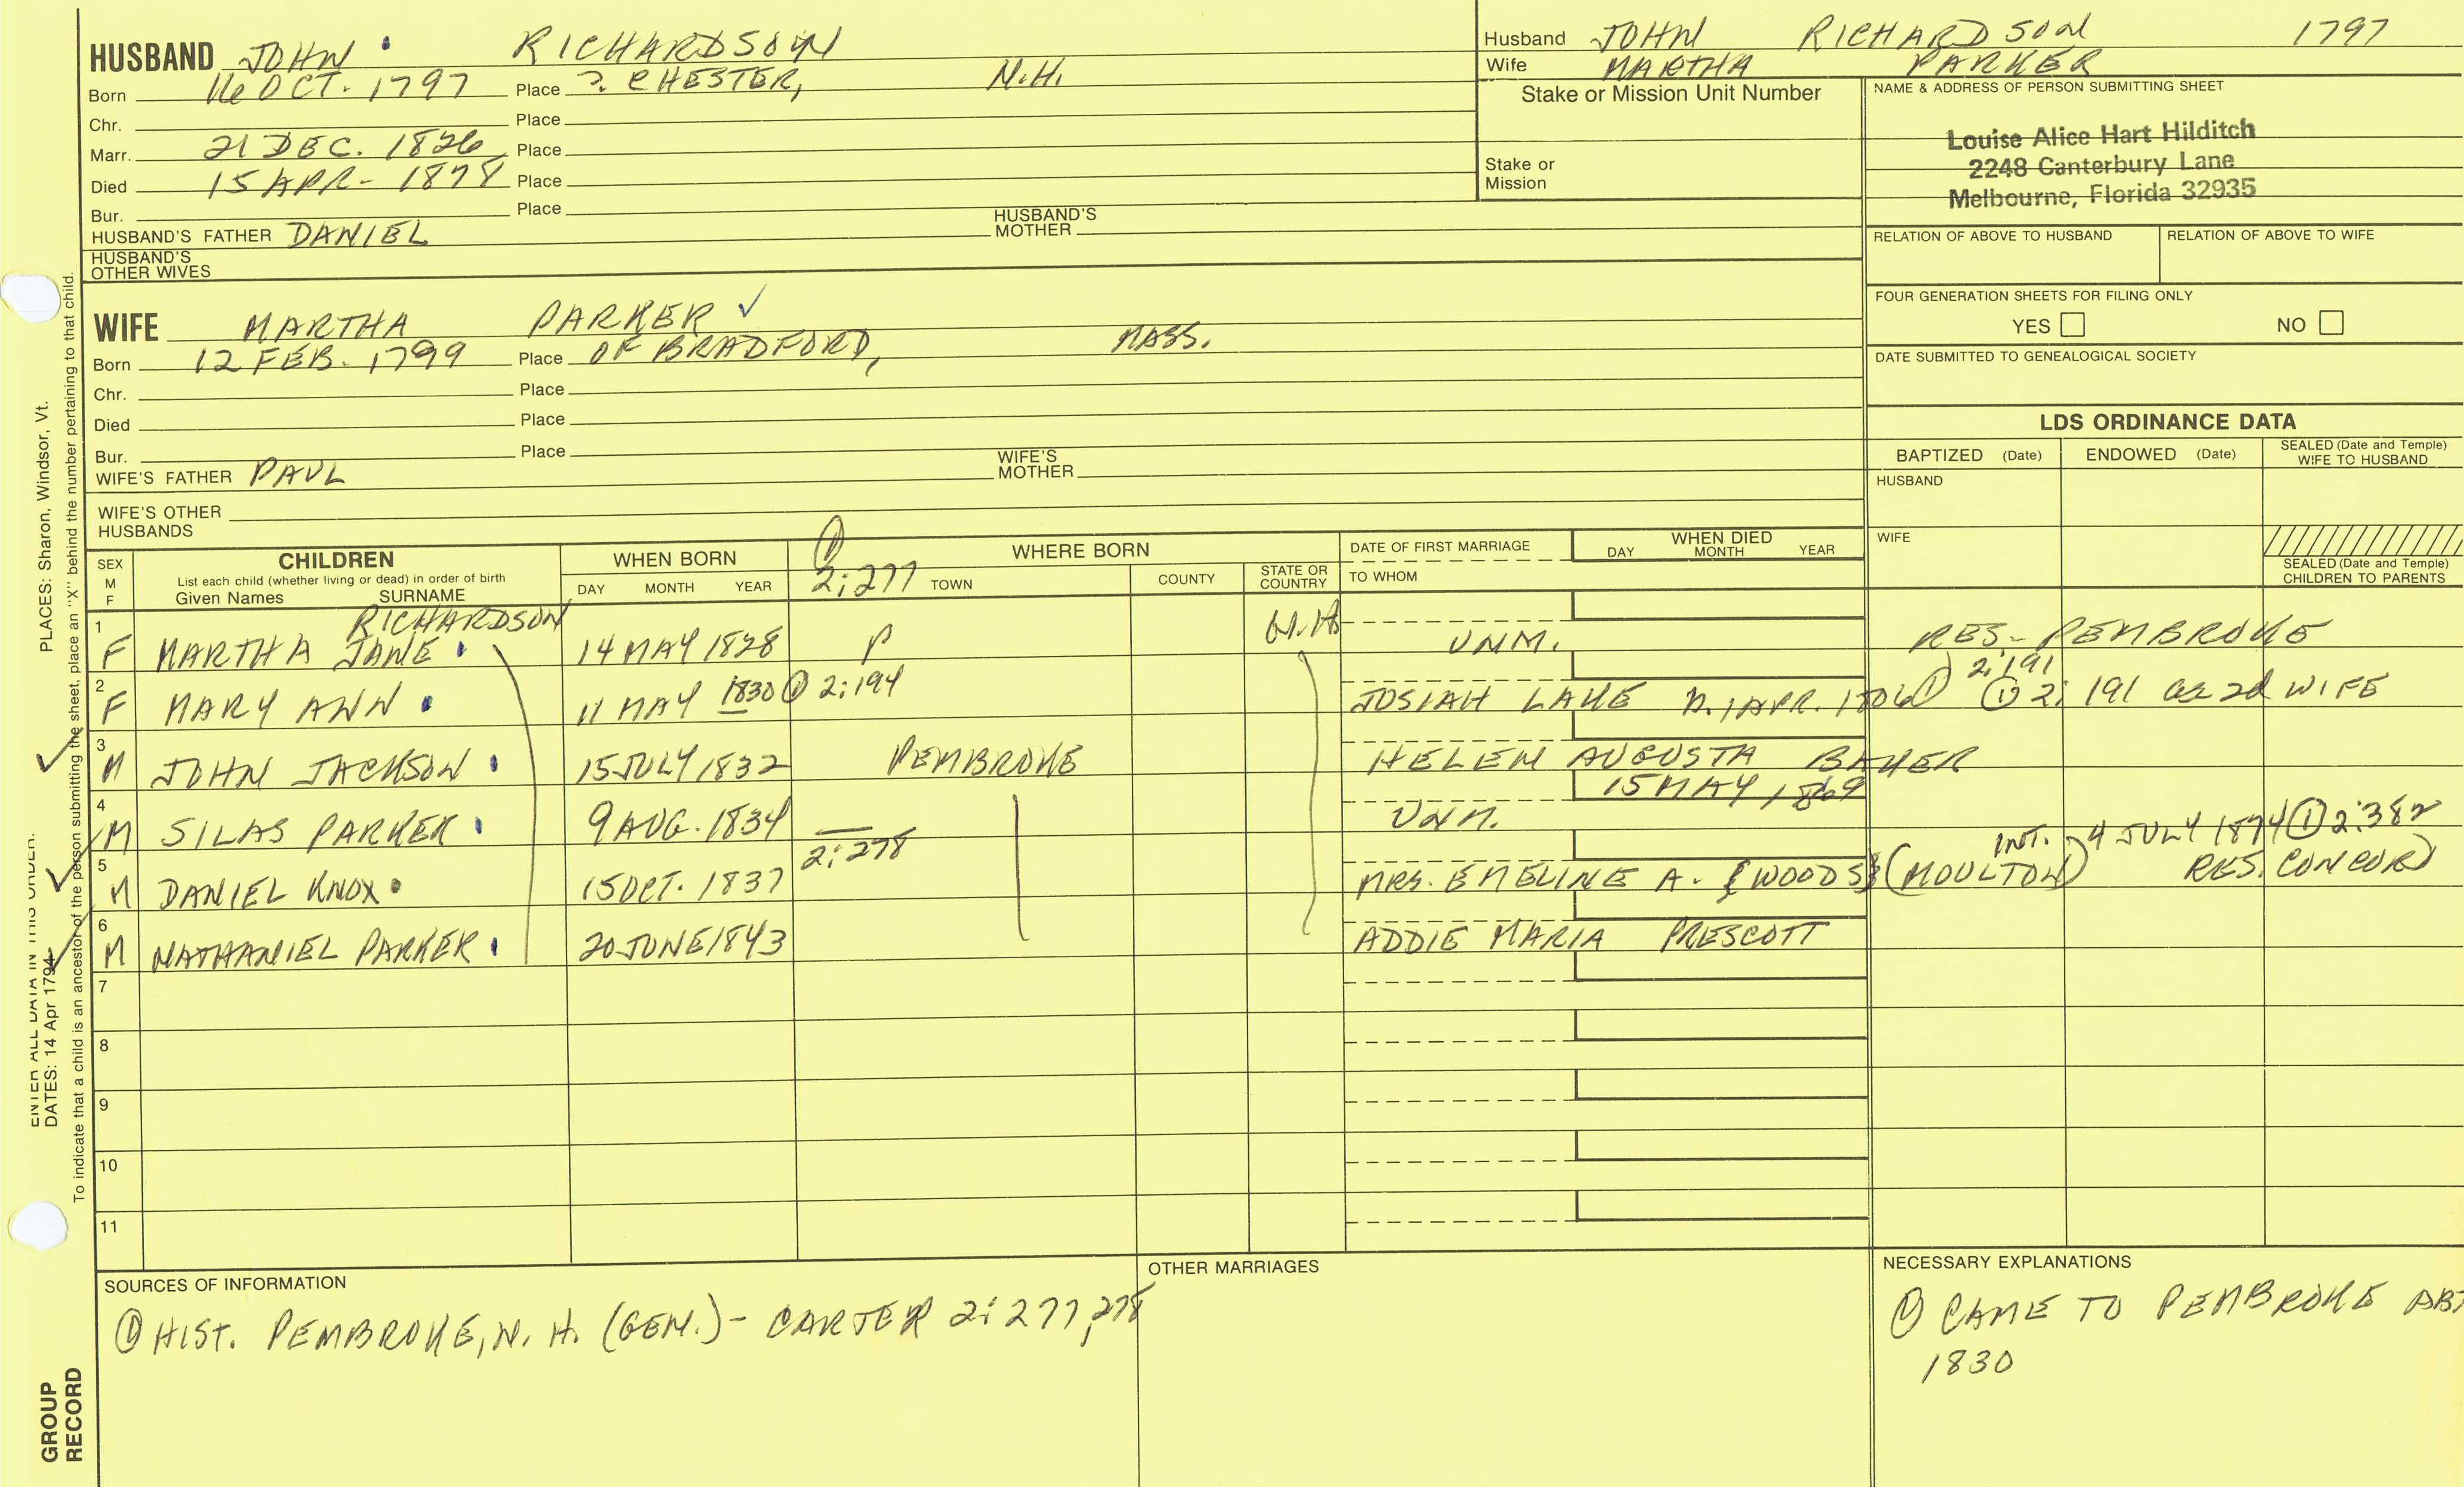 HUSBAND JOHN RICHARDSON
Born 16 OCT. 1797 Place ? CHESTER, N.H.
Chr. Place
Marr. 21 DEC. 1826 Place
Died 15 APR- 1878 Place
Bur. Place
HUSBAND'S FATHER DANIEL HUSBAND'S MOTHER
HUSBAND'S OTHER WIVES
Husband JOHN RICHARDSON 1797
Wife MARTHA PARKER
Stake or Mission Unit Number
Stake or Mission
NAME & ADDRESS OF PERSON SUBMITTING SHEET
Louise Alice Hart Hilditch
2248 Canterbury Lane
Melbourne, Florida 32935
RELATION OF ABOVE TO HUSBAND RELATION OF ABOVE TO WIFE
FOUR GENERATION SHEETS FOR FILING ONLY
YES NO
DATE SUBMITTED TO GENEALOGICAL SOCIETY
WIFE MARTHA PARKER ✓
Born 12 FEB. 1799 Place OF BRADFORD, MASS.
Chr. Place
Died Place
Bur. Place
WIFE'S FATHER PAUL WIFE'S MOTHER
WIFE'S OTHER HUSBANDS
LDS ORDINANCE DATA
BAPTIZED (Date) ENDOWED (Date) SEALED (Date and Temple) WIFE TO HUSBAND
HUSBAND
WIFE
SEALED (Date and Temple) CHILDREN TO PARENTS
SEX M F
CHILDREN
List each child (whether living or dead) in order of birth
Given Names SURNAME
WHEN BORN
DAY MONTH YEAR
WHERE BORN
① 2:277
TOWN COUNTY STATE OR COUNTRY
DATE OF FIRST MARRIAGE
TO WHOM
WHEN DIED
DAY MONTH YEAR
RICHARDSON
1 F MARTHA JANE 14 MAY 1828 P N.H. UNM. RES- PEMBROKE
2:191
2 F MARY ANN 11 MAY 1830 ① 2:194 JOSIAH LAKE B. 1 APR. 1806 ① ① 2:191 as 2d WIFE
3 M JOHN JACKSON 15 JULY 1832 PEMBROKE HELEN AUGUSTA BAKER
15 MAY 1869
4 M SILAS PARKER 9 AUG. 1834 UNM.
2:278
INT. 4 JULY 1874 ① 2:382
5 M DANIEL KNOX 15 OCT. 1837 MRS. EMELINE A. {WOODS} (MOULTON) RES. CONCORD
6 M NATHANIEL PARKER 20 JUNE 1843 ADDIE MARIA PRESCOTT
7
8
9
10
11
SOURCES OF INFORMATION
① HIST. PEMBROKE, N. H. (GEN.) - CARTER 2:277,278
OTHER MARRIAGES
NECESSARY EXPLANATIONS
① CAME TO PEMBROKE ABT
1830
PLACES: Sharon, Windsor, Vt.
ENTER ALL DATA IN THIS ORDER:
DATES: 14 Apr 1794
To indicate that a child is an ancestor of the person submitting the sheet, place an "X" behind the number pertaining to that child.
GROUP
RECORD